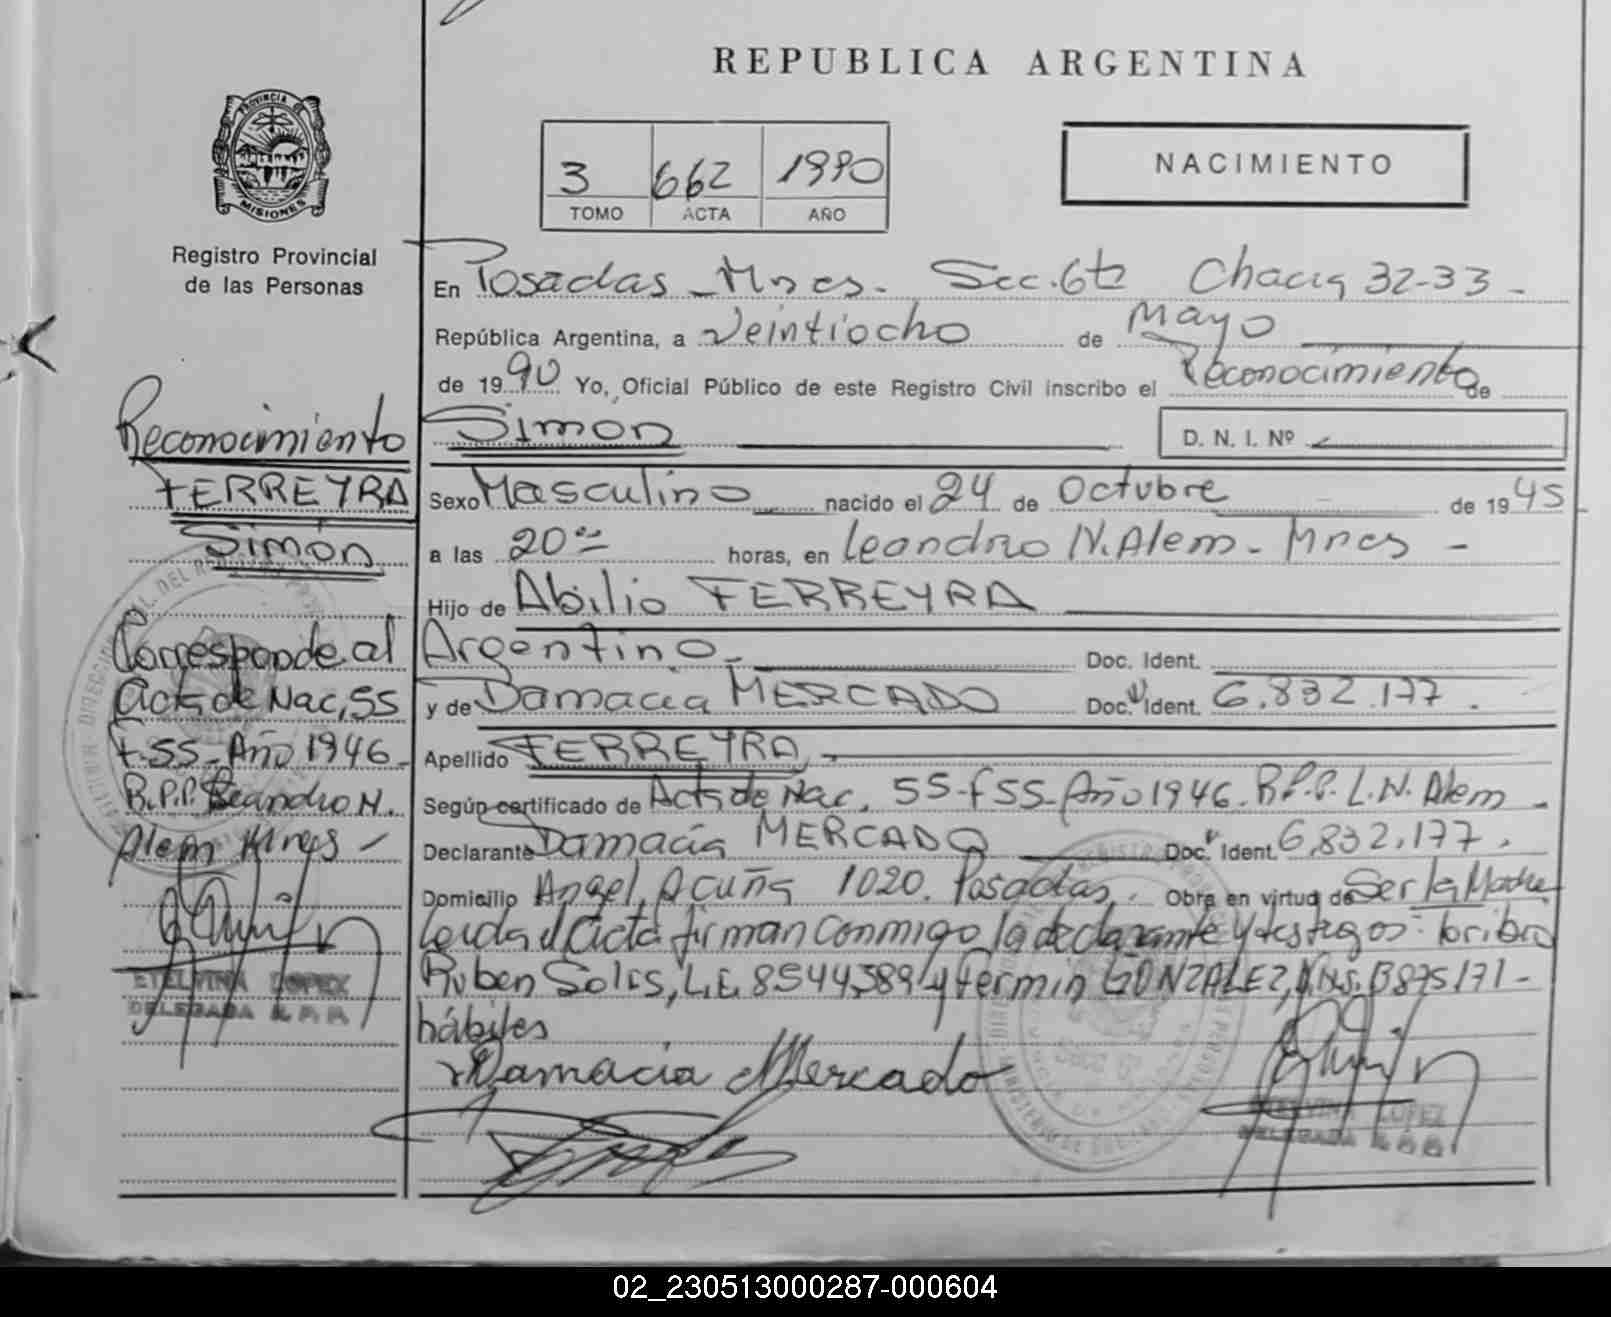 REPUBLICA ARGENTINA
PROVINCIA DE
MISIONES
Registro Provincial
de las Personas
3 662 1990
TOMO ACTA AÑO
NACIMIENTO
En Posadas - Mnes. Sec. 6ta Chacra 32-33 -
República Argentina, a Veintiocho de Mayo
de 1990 Yo, Oficial Público de este Registro Civil inscribo el Reconocimiento de
Simón D. N. I. Nº
Sexo Masculino nacido el 24 de Octubre de 1945
a las 20 horas, en Leandro N. Alem - Mnes -
Hijo de Abilio FERREYRA
Argentino - Doc. Ident.
y de Damacia MERCADO Doc. Ident. 6.832.177.
Apellido FERREYRA -
Según certificado de Acta de Nac. 55-f 55- Año 1946. R.P.P. L.N. Alem -
Declarante Damacia MERCADO Doc. Ident. 6.832.177.
Domicilio Angel Acuña 1020. Posadas, Obra en virtud de Ser la Madre
Leida el Acta firman conmigo la declarante y testigos:
Ruben Solis, L.E. 8544389 y Fermin GONZALEZ,
hábiles
Damacia Mercado
ETELVINA LOPEZ
DELEGADA R.P.P.
Reconocimiento
FERREYRA
Simón
Corresponde al
Acta de Nac, 55
f. 55 - Año 1946 -
R.P.P. Leandro N.
Alem Mnes -
ETELVINA LOPEZ
DELEGADA R.P.P.
02_230513000287-000604